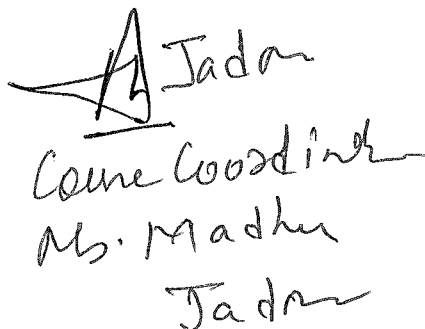 Jadon
Course Coordinator
Ms. Madhu
Jadon